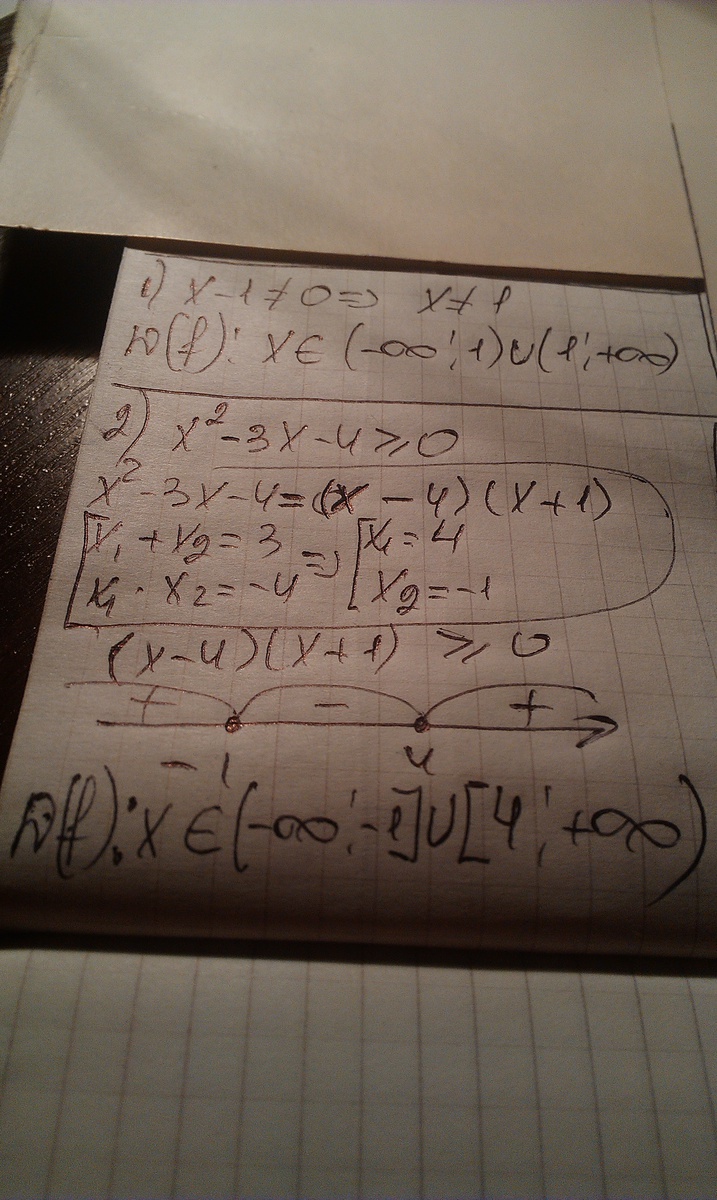 1) x-1≠0=> x≠1
D(f): x∈(-∞;1)∪(1;+∞)
2) x²-3x-4⩾0
x²-3x-4=(x-4)(x+1)
[x₁+x₂=3 => [x₁=4
x₁·x₂=-4 x₂=-1
(x-4)(x+1)⩾0
+ - +
-1 4
D(f): x∈(-∞;-1]∪[4;+∞)